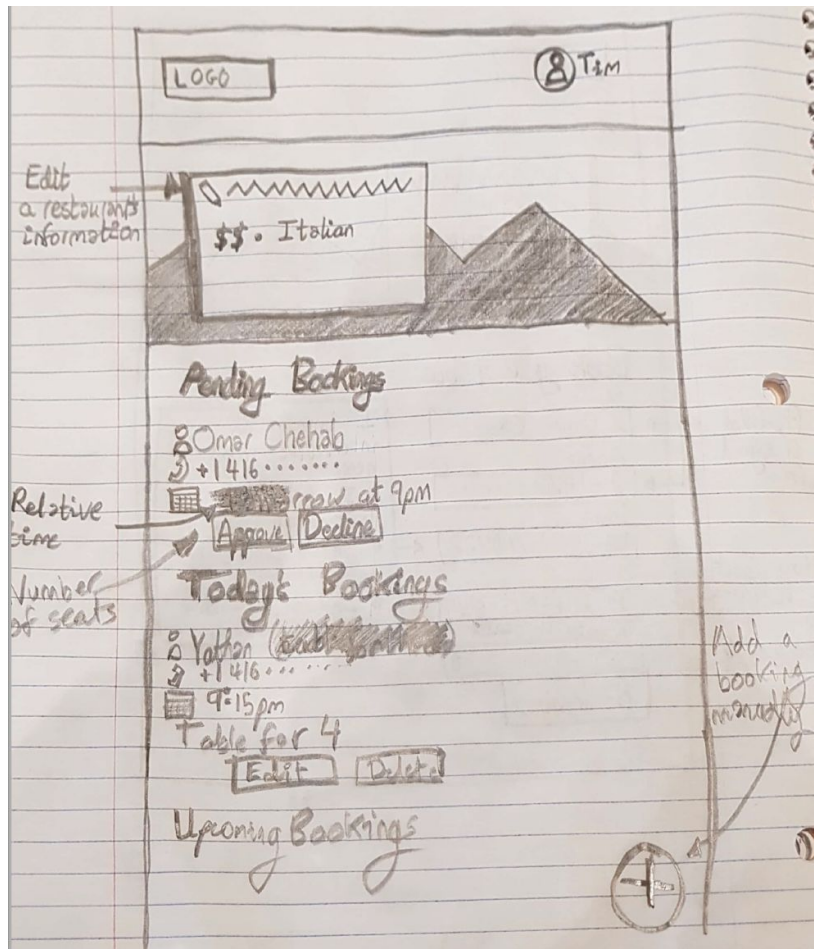 LOGO
Tim
Edit
a restaurant's
information
$$. Italian
Pending Bookings
Omar Chehab
+1 416 .......
at 9pm
Relative
time
Approve
Decline
Number
of seats
Today's Bookings
+1 416 .......
9:15pm
Table for 4
Edit
Delete
Add a
booking
manually
Upcoming Bookings